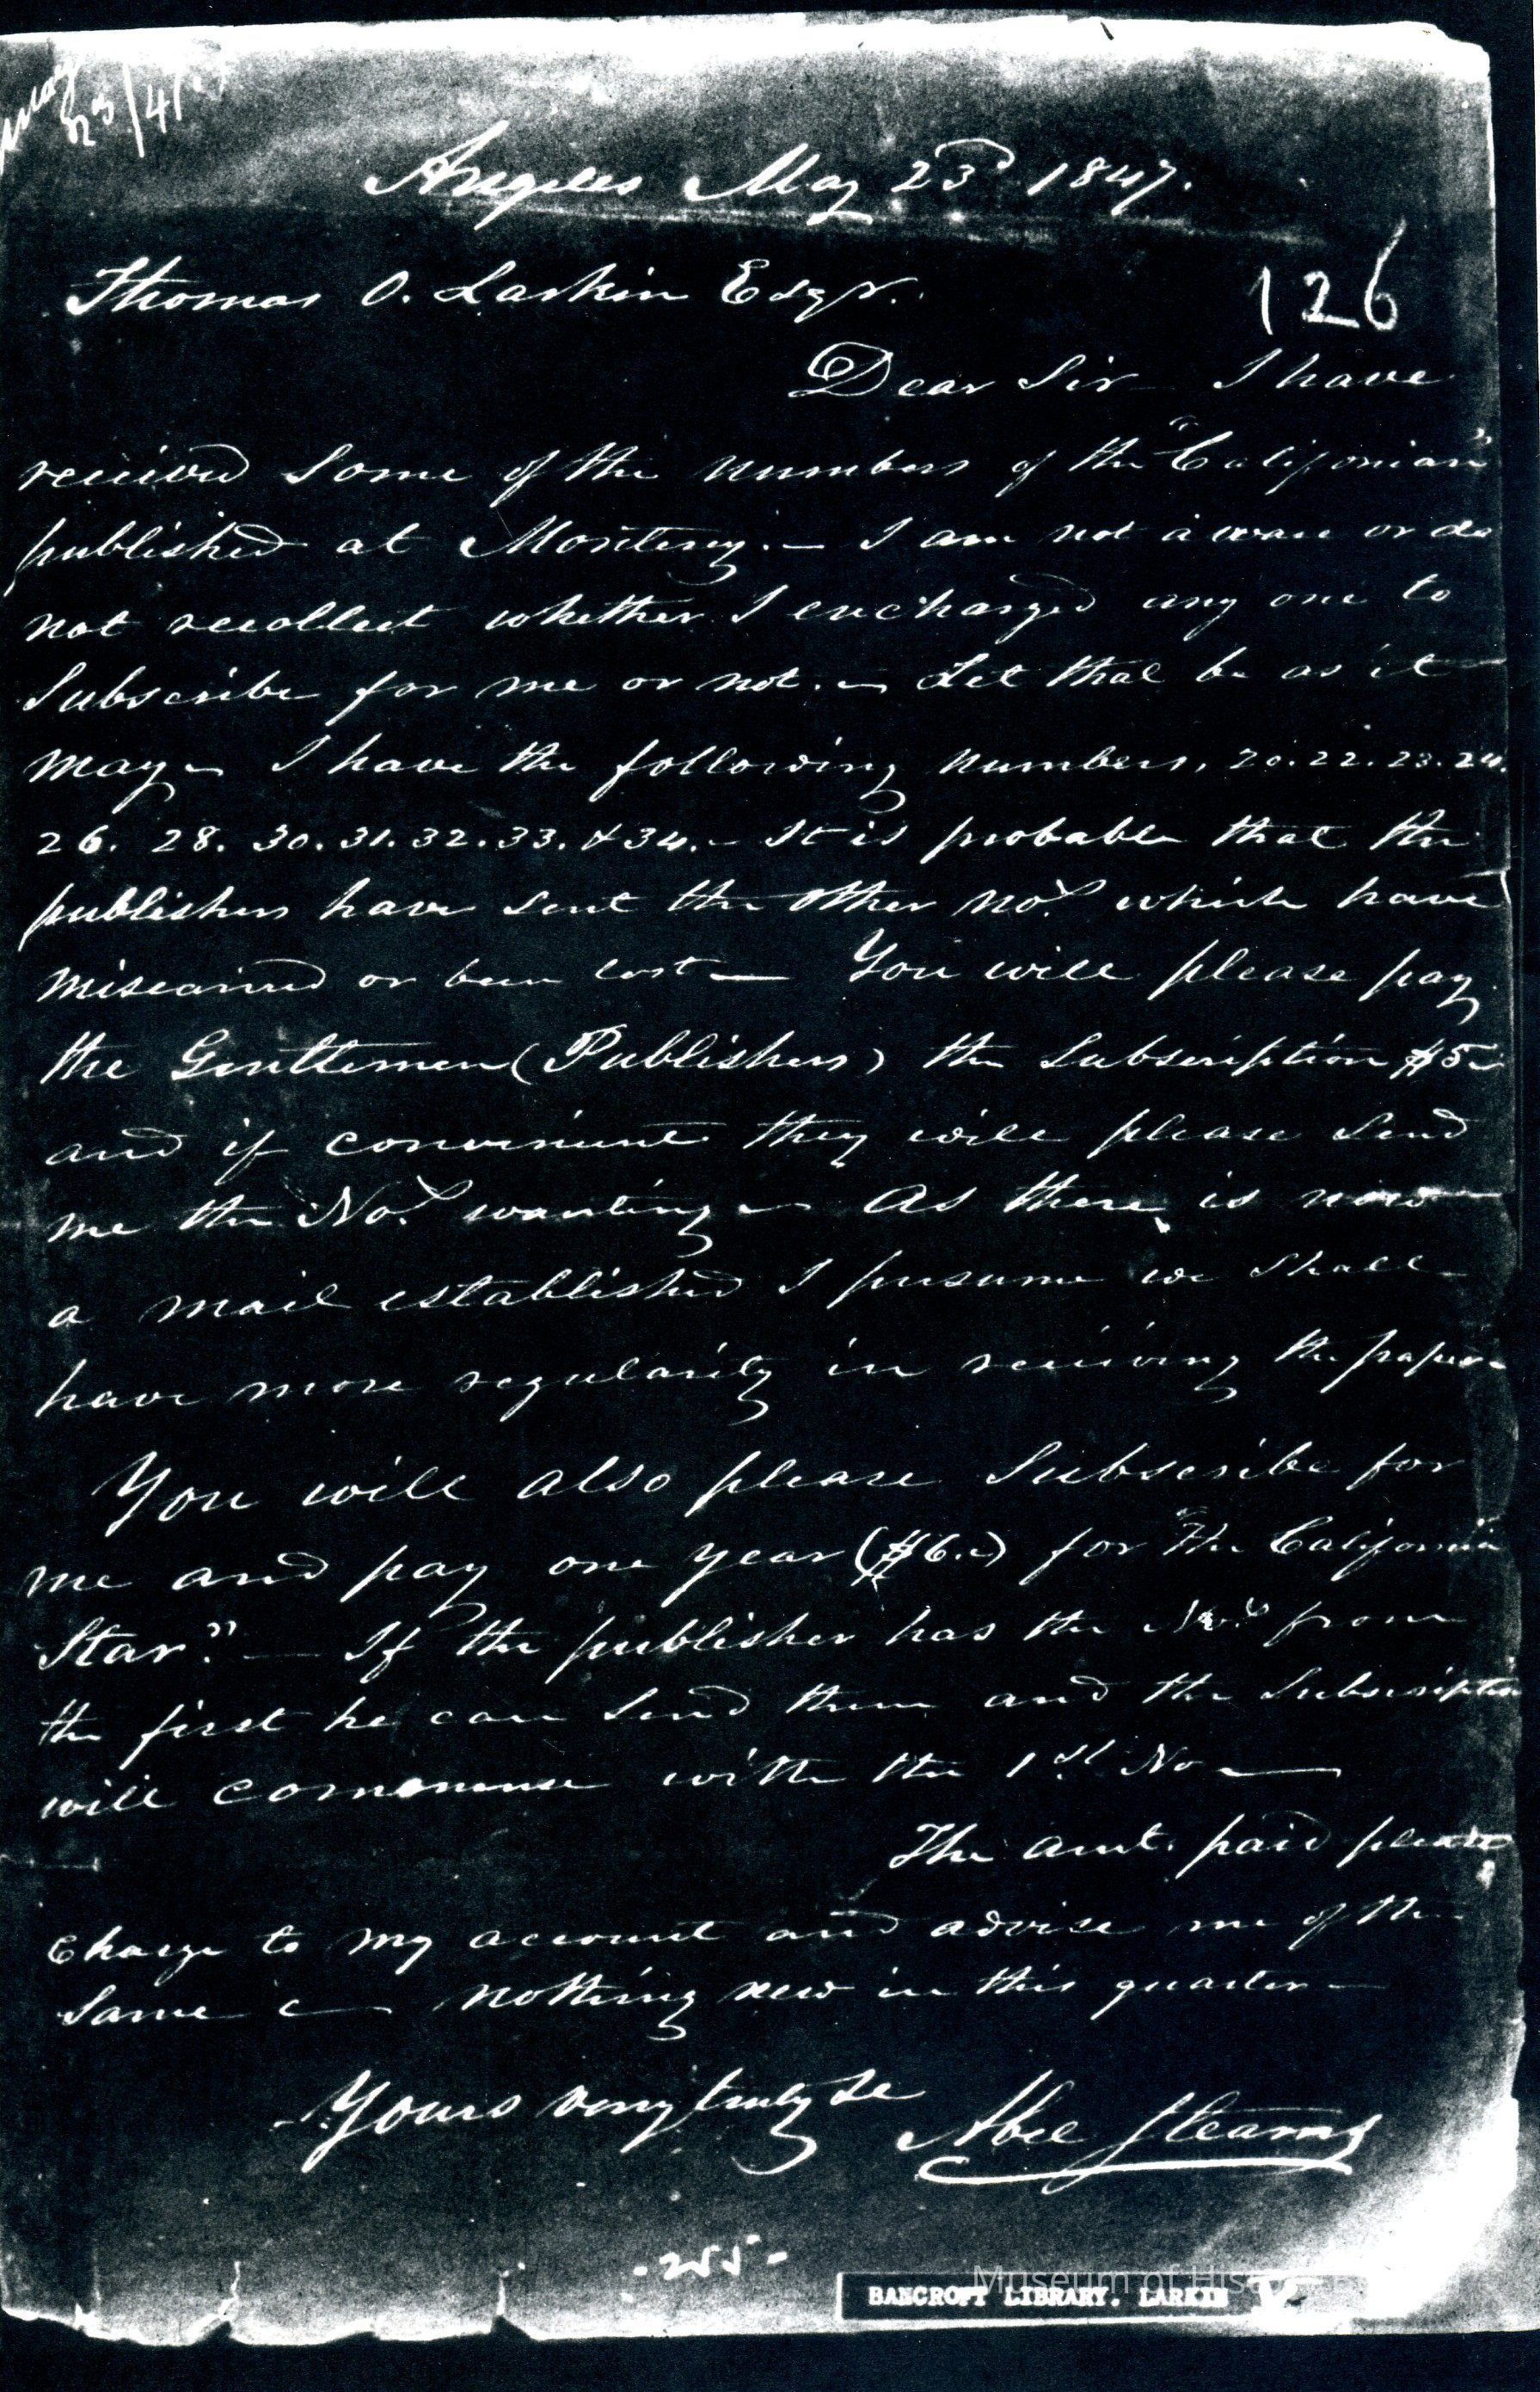 May 23/47
Angeles May 23d 1847.
Thomas O. Larkin Esqr.
126
Dear Sir I have
received some of the numbers of the "Californian"
published at Monterey. — I am not aware or do
not recollect whether I encharged any one to
Subscribe for me or not. — Let that be as it
may — I have the following numbers, 20. 22. 23. 24.
26. 28. 30. 31. 32. 33. & 34. — It is probable that the
publishers have sent the other nos. which have
miscarried or been lost — You will please pay
the Gentlemen (Publishers) the Subscription $5 —
and if convenient they will please send
me the Nos. wanting — As there is now
a mail established I presume we shall
have more regularity in receiving the papers
You will also please Subscribe for
me and pay one year ($6.) for "The California
Star." — If the publisher has the Nos. from
the first he can send them and the Subscription
will commense with the 1st No —
The amt. paid please
Charge to my account and advise me of the
Same — nothing new in this quarter —
Yours very truly &c Abel Stearns
- 255 -
BANCROFT LIBRARY. LARKIN
Museum of His